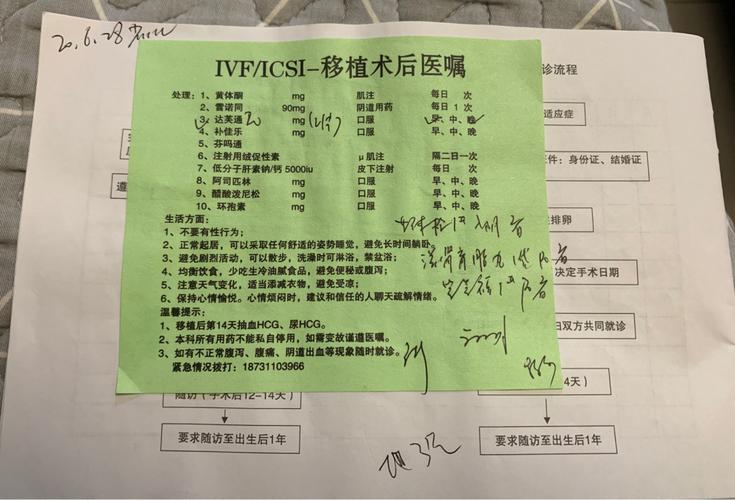 20.6.28
IVF/ICSI-移植术后医嘱
处理：1、黄体酮 mg 肌注 每日 次
2、雪诺同 90mg 阴道用药 每日 1 次
3、达芙通 mg 口服 早、中、晚
4、补佳乐 mg 口服 早、中、晚
5、芬吗通
6、注射用绒促性素 μ肌注 隔二日一次
7、低分子肝素钠/钙 5000iu 皮下注射 每日 次
8、阿司匹林 mg 口服 早、中、晚
9、醋酸泼尼松 mg 口服 早、中、晚
10、环孢素 mg 口服 早、中、晚
生活方面：
1、不要有性行为；
2、正常起居，可以采取任何舒适的姿势睡觉，避免长时间躺卧。
3、避免剧烈活动，可以散步，洗澡时可淋浴，禁盆浴；
4、均衡饮食，少吃生冷油腻食品，避免便秘或腹泻；
5、注意天气变化，适当添减衣物，避免受凉；
6、保持心情愉悦。心情烦闷时，建议和信任的人聊天疏解情绪。
温馨提示：
1、移植后第14天抽血HCG、尿HCG。
2、本科所有用药不能私自停用，如需变故谨遵医嘱。
3、如有不正常腹泻、腹痛、阴道出血等现象随时就诊。
紧急情况拨打：18731103966
诊流程
适应症
件：身份证、结婚证
排卵
决定手术日期
妇双方共同就诊
4天）
随访（手术后12-14天）
要求随访至出生后1年
要求随访至出生后1年